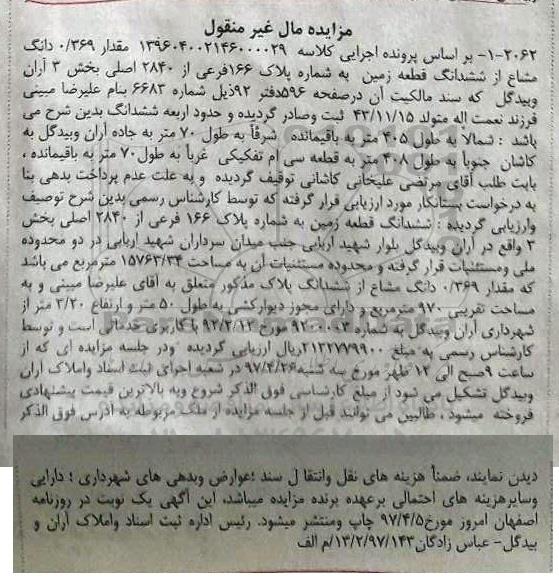 مزایده مال غیر منقول
۱-۲۰۶۲- بر اساس پرونده اجرایی کلاسه ۱۳۹۶۰۴۰۰۲۱۴۶۰۰۰۰۲۹ مقدار ۰/۳۶۹ دانگ
مشاع از ششدانگ قطعه زمین به شماره پلاک ۱۶۶فرعی از ۲۸۴۰ اصلی بخش ۳ آران
وبیدگل که سند مالکیت آن درصفحه ۵۹۶دفتر ۹۲ذیل شماره ۶۶۸۳ بنام علیرضا مبینی
فرزند نعمت اله متولد ۴۳/۱۱/۱۵ ثبت وصادر گردیده و حدود اربعه ششدانگ بدین شرح می
باشد : شمالا به طول ۴۰۵ متر به باقیمانده شرقاً به طول ۷۰ متر به جاده آران وبیدگل به
کاشان جنوبا به طول ۴۰۸ متر به قطعه سی ام تفکیکی غرباً به طول ۷۰ متر به باقیمانده ،
بابت طلب آقای مرتضی علیخانی کاشانی توقیف گردیده و به علت عدم پرداخت بدهی بنا
به درخواست بستانکار مورد ارزیابی قرار گرفته که توسط کارشناس رسمی بدین شرح توصیف
وارزیابی گردیده : ششدانگ قطعه زمین به شماره پلاک ۱۶۶ فرعی از ۲۸۴۰ اصلی بخش
۳ واقع در آران وبیدگل بلوار شهید اربابی جنب میدان سرداران شهید اربابی در دو محدوده
ملی ومستثنیات قرار گرفته و محدوده مستثنیات آن به مساحت ۱۵۷۶۳/۳۴ مترمربع می باشد
که مقدار ۰/۳۶۹ دانگ مشاع از ششدانگ پلاک مذکور متعلق به آقای علیرضا مبینی و به
مساحت تقریبی ۹۷۰ مترمربع و دارای مجوز دیوارکشی به طول ۵۰ متر و ارتفاع ۲/۲۰ متر از
شهرداری آران وبیدگل به شماره مورخ ۹۲/۲/۱۲ با کاربری خدماتی است و توسط
کارشناس رسمی به مبلغ ۲۱۳۲۷۷۹۹۰۰ریال ارزیابی گردیده ودر جلسه مزایده ای که از
ساعت ۹صبح الی ۱۲ ظهر مورخ سه شنبه ۹۷/۴/۲۶ در شعبه اجرای ثبت اسناد واملاک آران
وبیدگل تشکیل می شود از مبلغ کارشناسی فوق الذکر شروع وبه بالاترین قیمت پیشنهادی
فروخته میشود . طالبین می توانند قبل از جلسه مزایده از ملک مربوطه به آدرس فوق الذکر
دیدن نمایند، ضمناً هزینه های نقل وانتقا ل سند ؛عوارض وبدهی های شهرداری ؛ دارایی
وسایرهزینه های احتمالی برعهده برنده مزایده میباشد، این آگهی یک نوبت در روزنامه
اصفهان امروز مورخ۹۷/۴/۵ چاپ ومنتشر میشود. رئیس اداره ثبت اسناد واملاک آران و
بیدگل- عباس زادگان۱۳/۲/۹۷/۱۴۳/م الف